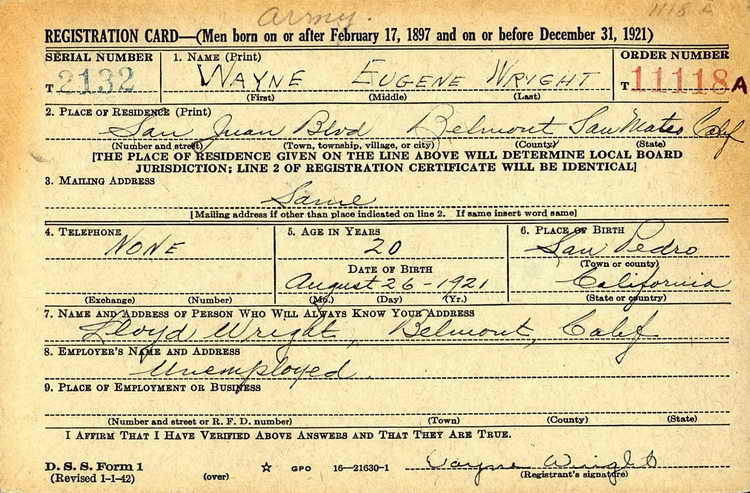 Army.
1118 A
REGISTRATION CARD—(Men born on or after February 17, 1897 and on or before December 31, 1921)
SERIAL NUMBER
T 2132
1. NAME (Print)
WAYNE EUGENE WRIGHT
(First) (Middle) (Last)
ORDER NUMBER
T 11118 A
2. PLACE OF RESIDENCE (Print)
San Juan Blvd Belmont San Mateo Calif
(Number and street) (Town, township, village, or city) (County) (State)
[THE PLACE OF RESIDENCE GIVEN ON THE LINE ABOVE WILL DETERMINE LOCAL BOARD
JURISDICTION; LINE 2 OF REGISTRATION CERTIFICATE WILL BE IDENTICAL]
3. MAILING ADDRESS
Same
[Mailing address if other than place indicated on line 2. If same insert word same]
4. TELEPHONE
NONE
(Exchange) (Number)
5. AGE IN YEARS
20
DATE OF BIRTH
August 26 - 1921
(Mo.) (Day) (Yr.)
6. PLACE OF BIRTH
San Pedro
(Town or county)
California
(State or country)
7. NAME AND ADDRESS OF PERSON WHO WILL ALWAYS KNOW YOUR ADDRESS
Lloyd Wright, Belmont, Calif
8. EMPLOYER'S NAME AND ADDRESS
Unemployed.
9. PLACE OF EMPLOYMENT OR BUSINESS
(Number and street or R. F. D. number) (Town) (County) (State)
I AFFIRM THAT I HAVE VERIFIED ABOVE ANSWERS AND THAT THEY ARE TRUE.
D. S. S. Form 1
(Revised 1-1-42) (over) ☆ GPO 16—21630-1
Wayne Wright
(Registrant's signature)